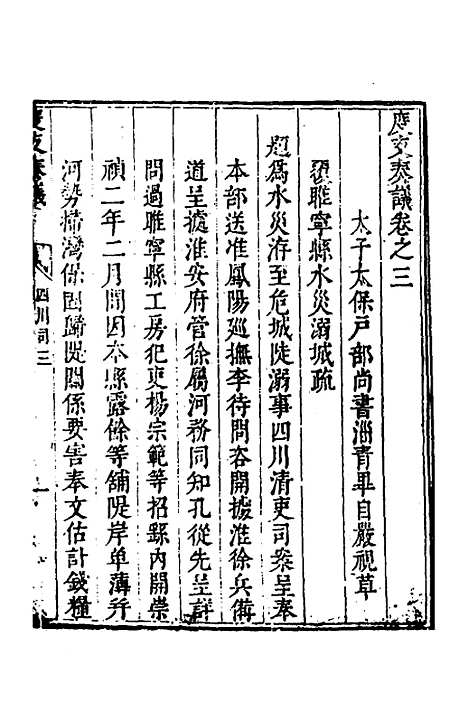 度支奏議卷之三
太子太保戶部尚書淄青畢自嚴視草
覆睢寧縣水災溺城疏
題爲水災洊至危城陡溺事四川清吏司案呈奉
本部送准鳳陽廵撫李待問咨開據淮徐兵備
道呈據淮安府管徐屬河務同知孔從先呈詳
問過睢寧縣工房犯吏楊宗範等招繇內開崇
禎二年二月間因本縣露餘等舖隄岸单薄并
河勢掃灣保固歸隄關係要害奉文估計錢糧
度支奏議
四川司三
一